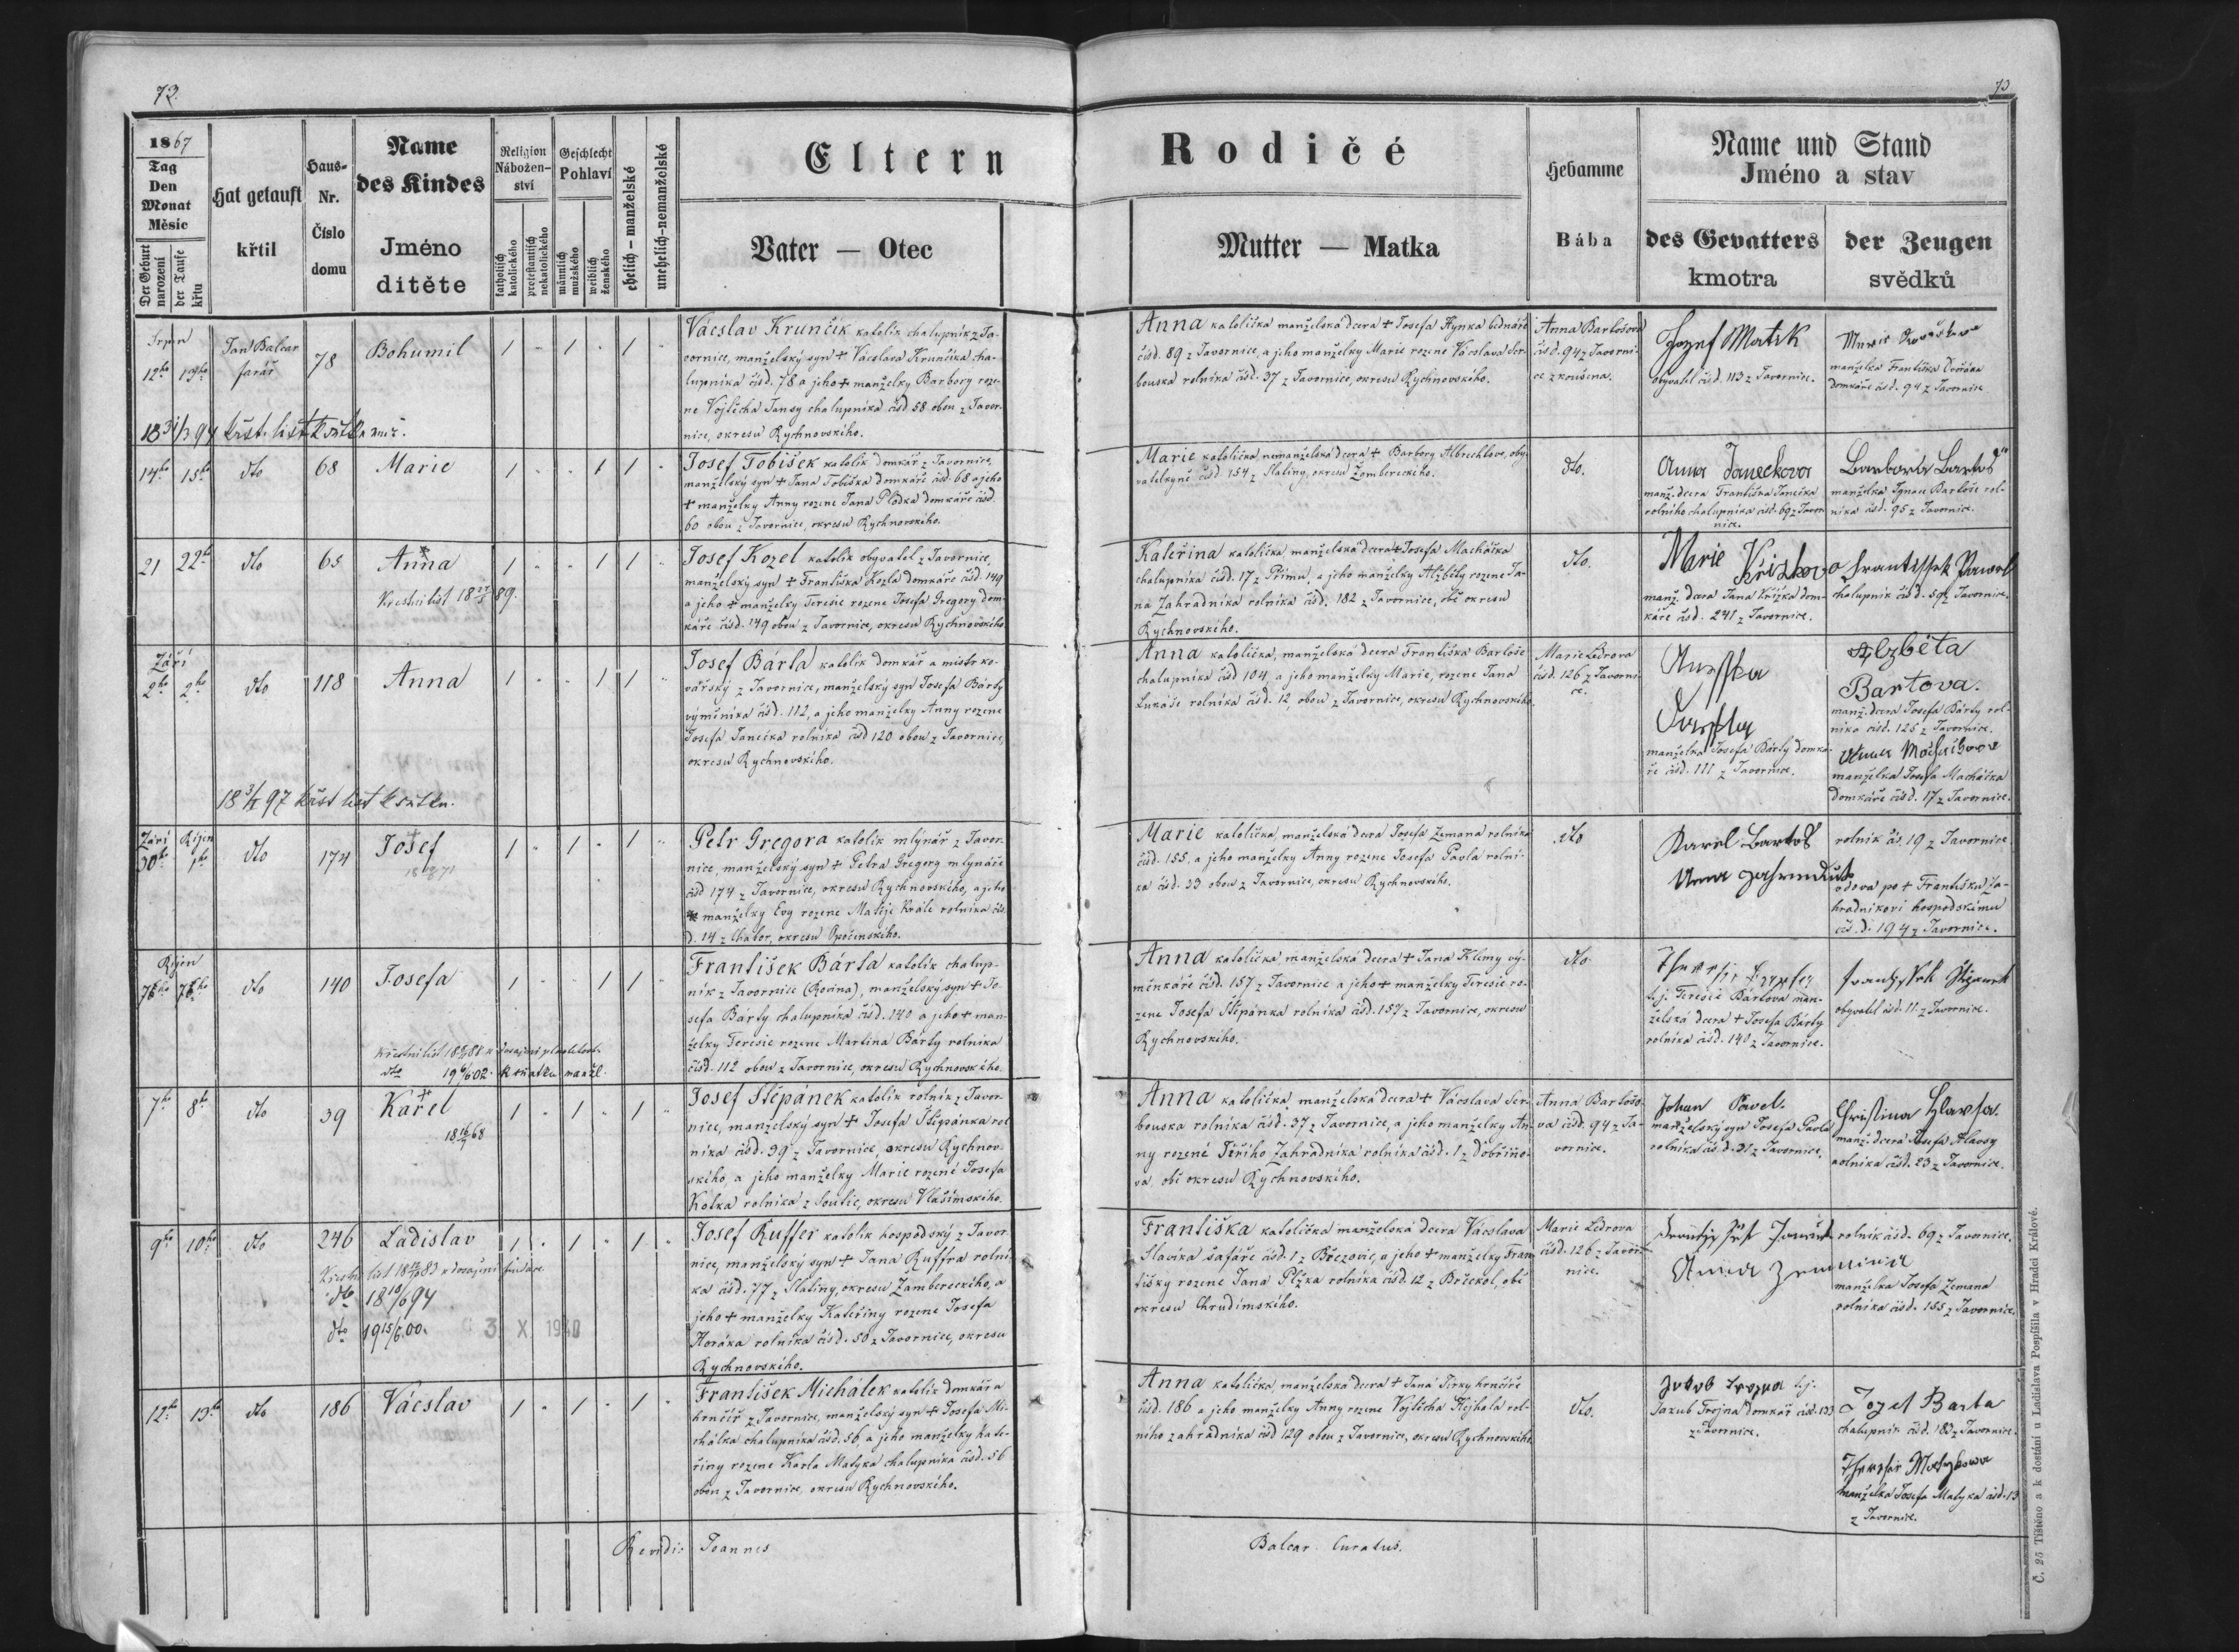 73.
73
1867
Tag
Den
Monat
Měsíc
Der Geburt
narození
der Taufe
křtu
Hat getauft
křtil
Haus-
Nr.
Číslo
domu
Name
des Kindes
Jméno
dítěte
Religion
Nábožen-
ství
katholisch
katolického
protestantisch
nekatolického
Geschlecht
Pohlaví
männlich
mužského
weiblich
ženského
ehelich - manželské
unehelich-nemanželské
Eltern
Rodičé
Vater — Otec
Mutter — Matka
Hebamme
Bába
Name und Stand
Jméno a stav
des Gevatters
kmotra
der Zeugen
svědků
Srpen
12ho 13ho
Jan Balcar
farář
78
Bohumil
1 " 1 " 1 "
Vácslav Krunčík katolík chalupník z Ja-
vornice, manželský syn + Vácslava Krunčíka cha-
lupníka čísd. 78 a jeho + manželky Barbory roze-
né Vojtěcha Jansy chalupníka čísd 58 obou z Javor-
nice, okresu Rychnovského.
Anna katolička manželská dcera + Josefa Hynka bednáře
čísd. 89 z Javornice, a jeho manželky Marie rozené Vácslava Ser-
bouska rolníka čísd. 37 z Javornice, okresu Rychnovského.
Anna Bartošova
čísd. 94 z Javorni-
ce zkoušena.
Jozef Matik
obyvatel čísd. 113 z Javornice.
manželka Františka Dvořáka
domkáře čísd. 94 z Javornice
křst. list k
14ho 15ho
dto
68
Marie
1 " " 1 1 "
Josef Tobišek katolík domkář z Javornice,
manželský syn + Jana Tobiška domkáře čísd. 68 a jeho
+ manželky Anny rozené Jana Plodka domkáře čísd.
60 obou z Javornice, okresu Rychnovského.
Marie katolička, nemanželská dcera + Barbory Albrechtove, oby-
vatelkyně čísd. 154 z Slatiny, okresu Žambereckého.
dto.
Anna Janeckova
manž. dcera Františka Janečka
rolního chalupníka čísd. 69 z Javor-
nice.
Barbora Bartoš
manželka Ignace Bartoše rol-
níka čísd. 95 z Javornice.
21 22ho
dto
65
Anna
Křestní list
1 " " 1 1 "
Josef Kozel katolík obyvatel z Javornice,
manželský syn + Františka Kozla domkáře čísd. 149
a jeho + manželky Teresie rozené Josefa Gregory dom-
káře čísd. 149 obou z Javornice, okresu Rychnovského
Kateřina katolička, manželská dcera + Josefa Macháčka
chalupníka čísd. 17 z Přímu, a jeho manželky Alžběty rozené Ja-
na Zahradníka rolníka čísd. 182 z Javornice, obě okresu
Rychnovského.
dto.
Marie Křižkova
manž. dcera Jana Křížka dom-
káře čísd. 241 z Javornice.
Frantissek Pawel
chalupník čísd. 59 z Javornice.
Září
2ho 2ho
dto
118
Anna
1 " " 1 1 "
Josef Bárta katolík domkář a mistr ko-
vářský z Javornice, manželský syn Josefa Bárty
výminíka čísd. 112, a jeho manželky Anny rozené
Josefa Janečka rolníka čísd 120 obou z Javornice,
okresu Rychnovského.
Anna katolička, manželská dcera Františka Bartoše
chalupníka čísd 104, a jeho manželky Marie, rozené Jana
Lukáše rolníka čísd. 12, obou z Javornice, okresu Rychnovského.
Marie Ledrova
čísd. 126 z Javorni-
ce.
manželka Josefa Bárty domká-
ře čísd. 111 z Javornice.
Alzběta
Bartova.
manž. dcera Josefa Bárty rol-
níka čísd. 125 z Javornice.
manželka Josefa Macháčka
domkáře čísd. 17 z Javornice.
97 křst list k
Září Říjen
30ho 1ho
dto
174
Josef
1 " 1 " 1 "
Petr Gregora katolík mlýnář z Javor-
nice, manželský syn + Petra Gregory mlynáře
čísd 174 z Javornice, okresu Rychnovského, a jeho
manželky Evy rozené Matěje Krále rolníka čís.
d. 14 z Chábor, okresu Opočenského.
Marie katolička, manželská dcera Josefa Zemana rolníka
čísd. 155, a jeho manželky Anny rozené Josefa Pavla rolní-
ka čísd. 33 obou z Javornice, okresu Rychnovského.
dto
Karel Bartoš
rolník čís. 19 z Javornice.
Anna
vdova po + Františku Za-
hradníkovi hospodskému
čís. d. 194 z Javornice.
Říjen
dto
140
Josefa
1 " " 1 1 "
František Bárta katolík chalup-
ník z Javornice (Rovina), manželský syn + Jo-
sefa Bárty chalupníka čísd. 140 a jeho + man-
želky Teresie rozené Martina Bárty rolníka
čísd. 112 obou z Javornice, okresu Rychnovského.
Anna katolička manželská dcera + Jana Klimy vý-
měnkáře čísd. 157 z Javornice a jeho + manželky Teresie ro-
zené Josefa Štěpánka rolníka čísd. 157 z Javornice, okresu
Rychnovského.
dto.
t. j. Teresie Bártova man-
želská dcera + Josefa Bárty
rolníka čísd. 140 z Javornice.
obyvatel čísd. 11 z Javornice.
7ho 8ho
dto
39
Karel
1 " 1 " 1 "
Josef Štěpánek katolík rolník z Javor-
nice, manželský syn + Josefa Štěpánka rol-
níka čísd. 39 z Javornice, okresu Rychnov-
ského, a jeho manželky Marie rozené Josefa
Kotka rolníka z Soutic, okresu Vlašimského.
Anna katolička, manželská dcera + Vácslava Ser-
bouska rolníka čísd. 37 z Javornice, a jeho manželky An-
ny rozené Jiřího Zahradníka rolníka čísd. 1 z Dobříno-
va, obě okresu Rychnovského.
Anna Bartošo-
va čísd. 94 z Ja-
vornice.
Johan Pavel.
manželský syn Josefa Pavla
rolníka čísd. 31 z Javornice.
Christina Hlavsa.
manž. dcera Josefa Hlavsy
rolníka čísd. 23 z Javornice.
9ho 10ho
dto
246
Ladislav
dto
dto
3 X 1940
1 " 1 " 1 "
Josef Ruffer katolík hospodský z Javor-
nice, manželský syn + Jana Ruffra rolní-
ka čísd. 77 z Slatiny, okresu Žambereckého, a
jeho + manželky Kateřiny rozené Josefa
Horáka rolníka čísd. 50 z Javornice, okresu
Rychnovského.
Františka katolička manželská dcera Vácslava
Slavíka šafáře čísd. 1 z Březovic, a jeho + manželky Fran-
tišky rozené Jana Plžka rolníka čísd. 12 z Brčekol, obě
okresu Chrudimského.
Marie Ledrova
čísd. 126 z Javor-
nice.
rolník čísd. 69 z Javornice.
Anna
manželka Josefa Zemana
rolníka čísd. 155 z Javornice.
12ho 13ho
dto
186
Vácslav
1 " 1 " 1 "
František Michálek katolík domkář a
hrnčíř z Javornice, manželský syn + Josefa Mi-
chálka chalupníka čísd. 56, a jeho manželky Kate-
řiny rozené Karla Matyka chalupníka čísd. 56
obou z Javornice, okresu Rychnovského.
Anna katolička, manželská dcera + Jana Jirky hrnčíře
čísd. 186 a jeho manželky Anny rozené Vojtěcha Kejhala rol-
ního zahradníka čísd 129 obou z Javornice, okresu Rychnovského
dto.
t. j.
Jakub Trejna domkář čísd. 133
z Javornice.
Jozef Barta
chalupník čísd. 183 z Javornice.
manželka Josefa Matyka čísd. 13
z Javornice.
Revidi: Joannes Balcar Curatus.
Č. 25 Tištěno a k dostání u Ladislava Pospíšila v Hradci Králové.